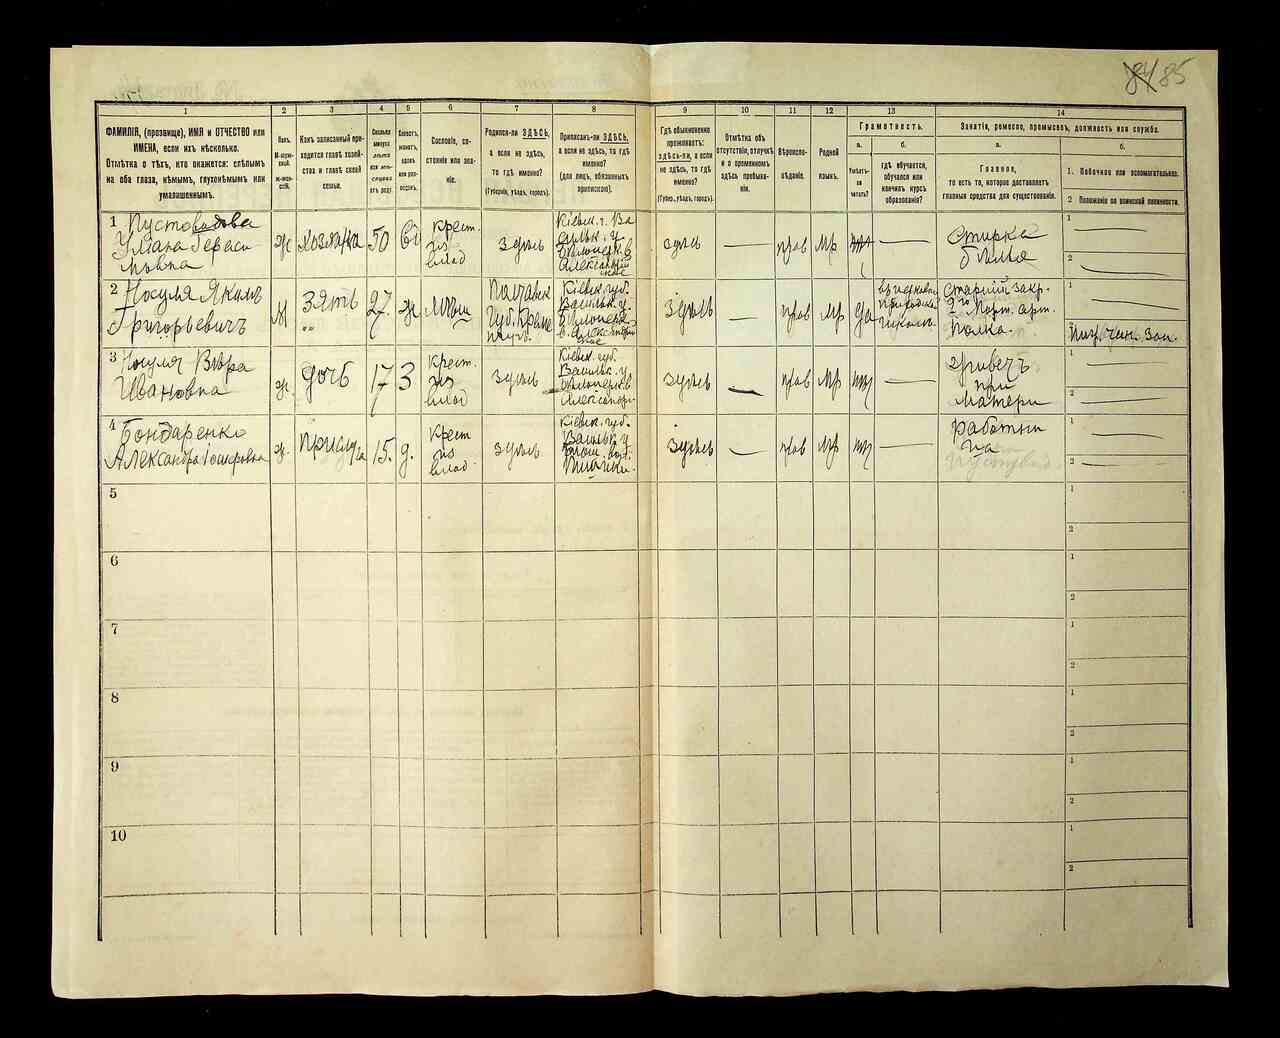 84 85
1 2 3 4 5 6 7 8 9 10 11 12 13 14
ФАМИЛІЯ, (прозвище), ИМЯ и ОТЧЕСТВО или
ИМЕНА, если ихъ нѣсколько.
Отмѣтка о тѣхъ, кто окажется: слѣпымъ
на оба глаза, нѣмымъ, глухонѣмымъ или
умалишеннымъ.
Полъ.
М-мужской.
Ж-женскій.
Какъ записанный при-
ходится главѣ хозяй-
ства и главѣ своей
семьи.
Сколько
минуло
лѣтъ
или мѣс-
яцевъ
отъ роду.
Холостъ,
женатъ,
вдовъ
или раз-
веденъ.
Сословіе, со-
стояніе или зва-
ніе.
Родился-ли ЗДѢСЬ,
а если не здѣсь,
то гдѣ именно?
(Губернія, уѣздъ, городъ).
Приписанъ-ли ЗДѢСЬ,
а если не здѣсь, то гдѣ
именно?
(для лицъ, обязанныхъ
припискою).
Гдѣ обыкновенно
проживаетъ:
здѣсь-ли, а если
не здѣсь, то гдѣ
именно?
(Губер., уѣздъ, городъ).
Отмѣтка объ
отсутствіи, отлучкѣ
и о временномъ
здѣсь пребыва-
ніи.
Вѣроиспо-
вѣданіе.
Родной
языкъ.
Грамотность.
а.
Умѣетъ-
ли
читать?
б.
гдѣ обучается,
обучался или
кончилъ курсъ
образованія?
Занятіе, ремесло, промыселъ, должность или служба.
а.
Главное,
то есть то, которое доставляетъ
главныя средства для существованія.
б.
1. Побочное или вспомогательное.
2 Положеніе по воинской повинности.
1 Пустовадова
Ульяна Гераси
мовна
ж
хозяйка
50
вд
крест.
из
влад
здѣсь
Кіевск. г. Ва
сильк. у.
здѣсь
—
прав
мр
—
Стирка
бѣлья
1 —
2 —
2 Носуля Якимъ
Григорьевичъ
м
Зять
27.
ж
Полтавск
губ. Креме
нчуг.
Кіевск. губ.
Васильк. у.
здѣсь
—
прав
мр
да
въ церковно
приходск
школѣ.
старшій
2го Морт. арт.
полка.
1 —
2 Ниж. чин. зап.
3 Носуля Вѣра
Ивановна
ж.
дочь
17
З
Крест.
из
влад
здѣсь
Кіевск. губ.
Васильк. у
здѣсь
—
прав
мр
—
живетъ
при
матери
1 —
2 —
4 Бондаренко
Александра
ж.
прислуга
15.
д.
Крест
из
влад.
здѣсь
Кіевск. губ.
Васильк. у
здѣсь
—
прав
мр
работни
ца
1 —
2 —
5 1
2
6 1
2
7 1
2
8 1
2
9 1
2
10 1
2